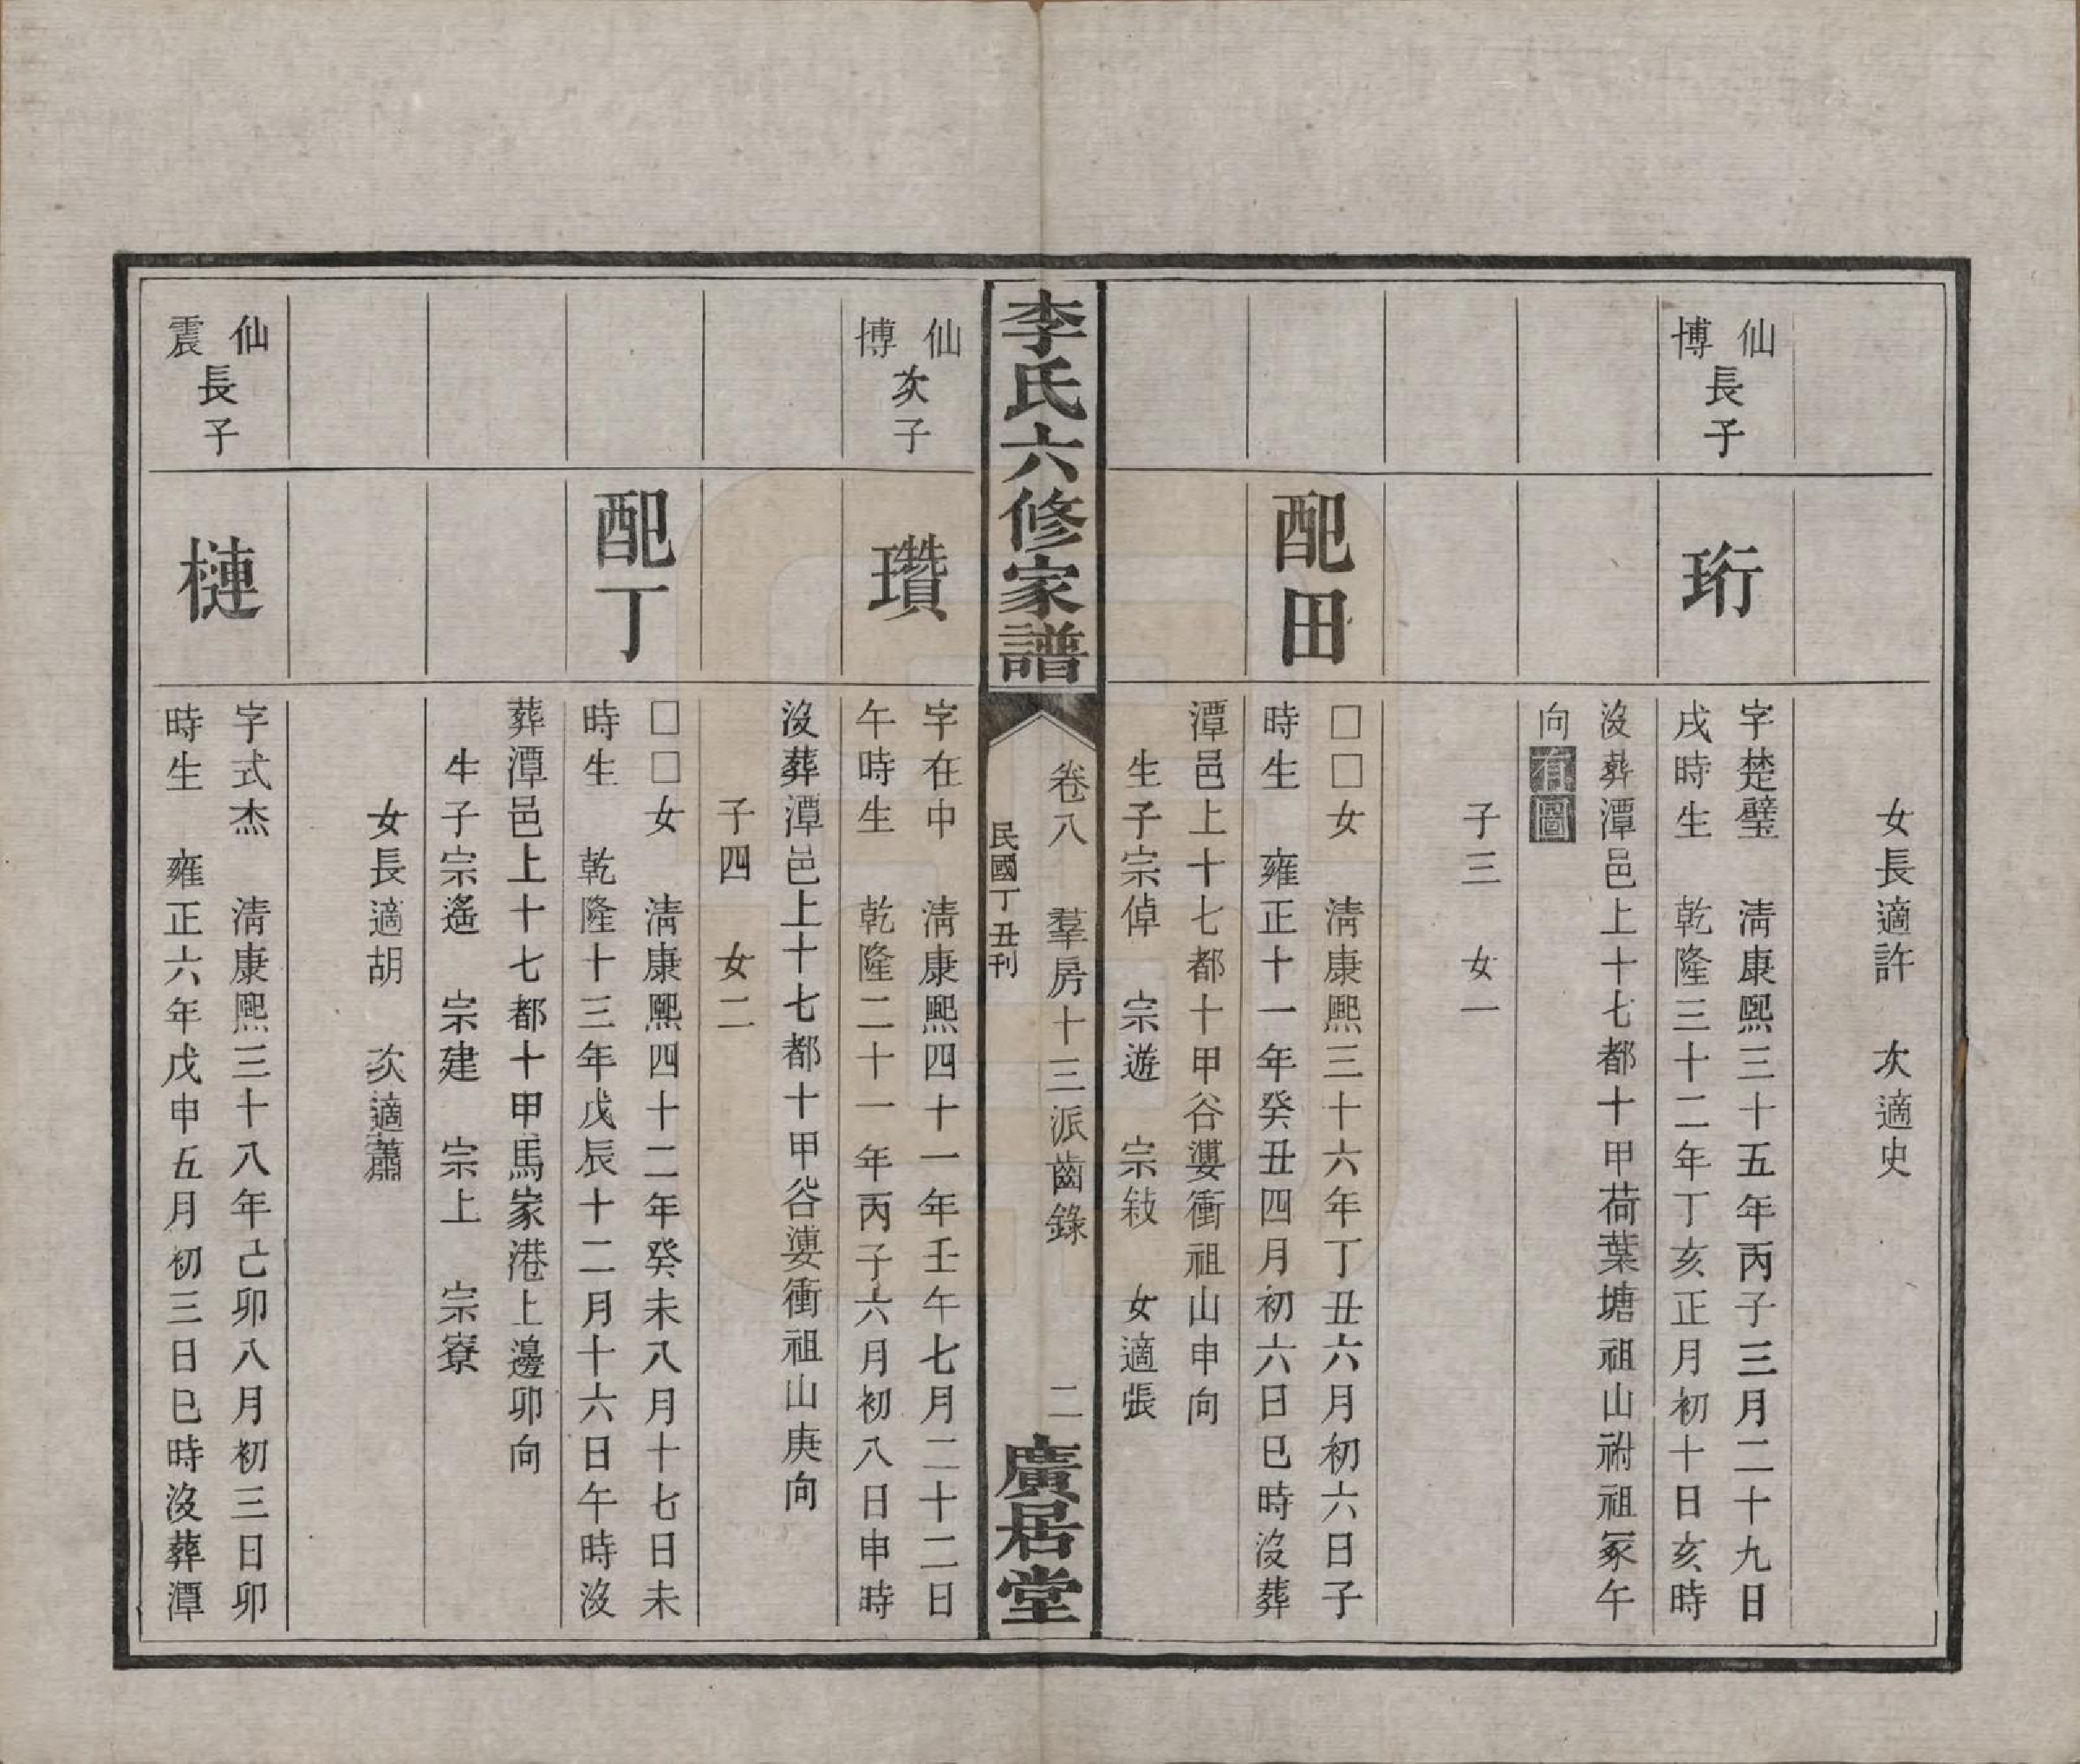 女長適許　次適史
仙博長子
珩
字楚璧　清康熙三十五年丙子三月二十九日
戌時生　乾隆三十二年丁亥正月初十日亥時
沒葬潭邑上十七都十甲荷葉塘祖山祔祖冢午
向有圖
子三　女一
配田
□□女　清康熙三十六年丁丑六月初六日子
時生　雍正十一年癸丑四月初六日巳時沒葬
潭邑上十七都十甲谷蔞衝祖山申向
生子宗倬　宗遊　宗敍　女適張
李氏六修家譜
卷八　羣房十三派齒錄　二
民國丁丑刊
廣居堂
仙博次子
瓚
字在中　清康熙四十一年壬午七月二十二日
午時生　乾隆二十一年丙子六月初八日申時
沒葬潭邑上十七都十甲谷蔞衝祖山庚向
子四　女二
配丁
□□女　清康熙四十二年癸未八月十七日未
時生　乾隆十三年戊辰十二月十六日午時沒
葬潭邑上十七都十甲馬家港上邊卯向
生子宗遙　宗建　宗上　宗寮
女長適胡　次適蕭
仙震長子
槤
字式杰　清康熙三十八年己卯八月初三日卯
時生　雍正六年戊申五月初三日巳時沒葬潭